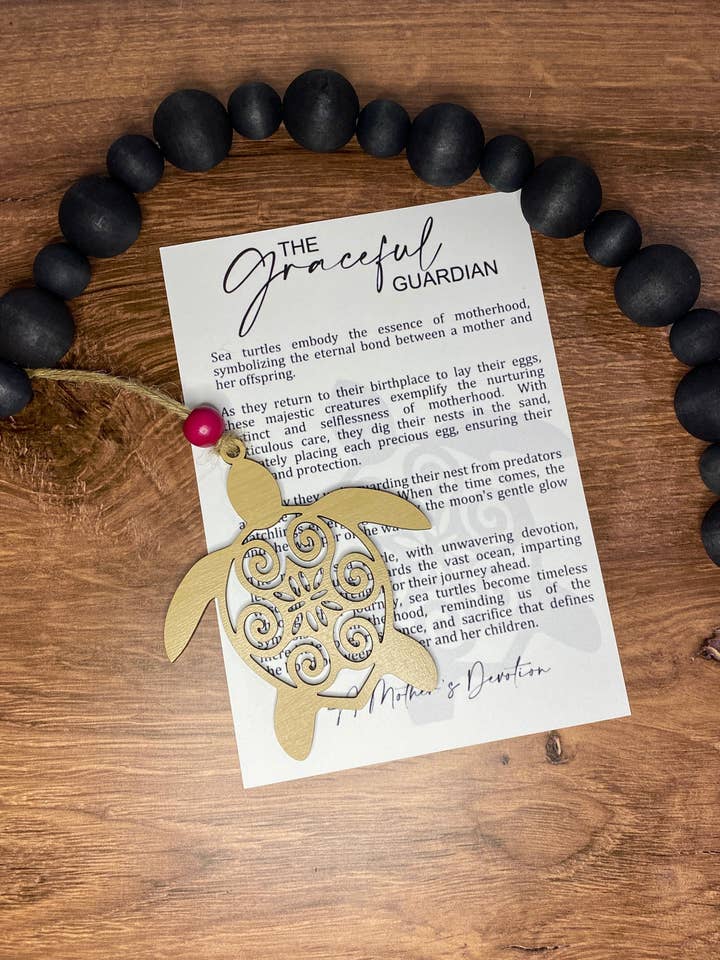 THE
Graceful
GUARDIAN
Sea turtles embody the essence of motherhood,
symbolizing the eternal bond between a mother and
her offspring.
As they return to their birthplace to lay their eggs,
these majestic creatures exemplify the nurturing
and selflessness of motherhood. With
care, they dig their nests in the sand,
placing each precious egg, ensuring their
protection.
they guarding their nest from predators
When the time comes, the
the moon's gentle glow
the on the
with unwavering devotion,
the vast ocean, imparting
for their journey ahead.
sea turtles become timeless
reminding us of the
and sacrifice that defines
the and her children.
A Mother's Devotion